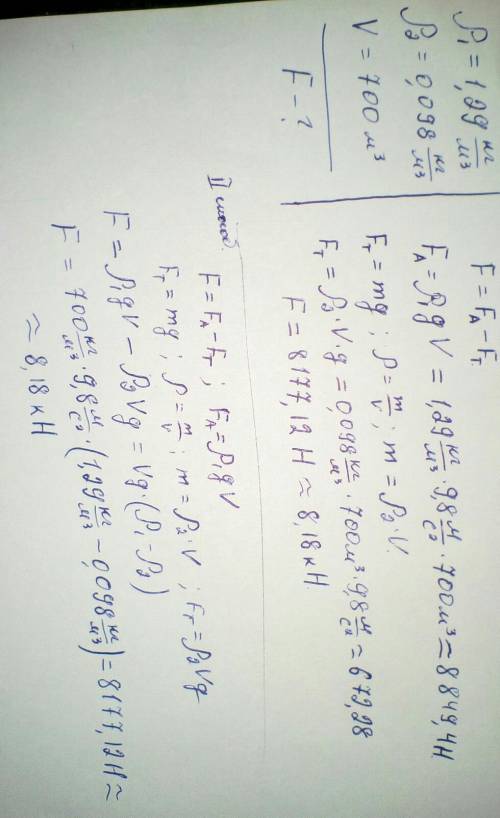 ρ₁ = 1,29 кг/м³
ρ₂ = 0,098 кг/м³
V = 700 м³
F - ?
F = Fₐ - Fт.
Fₐ = ρ₁gV = 1,29 кг/м³ · 9,8 м/с² · 700 м³ ≈ 8849,4 Н.
Fт = mg ; ρ = m/V ; m = ρ₂ · V.
Fт = ρ₂ · V · g = 0,098 кг/м³ · 700 м³ · 9,8 м/с² ≈ 672,28
F = 8177,12 Н ≈ 8,18 кН.
II способ.
F = Fₐ - Fт ; Fₐ = ρ₁gV
Fт = mg ; ρ = m/V ; m = ρ₂ · V ; Fт = ρ₂Vg
F = ρ₁gV - ρ₂Vg = Vg · (ρ₁ - ρ₂)
F = 700 кг/м³ · 9,8 м/с² · (1,29 кг/м³ - 0,098 кг/м³) = 8177,12 Н ≈
≈ 8,18 кН